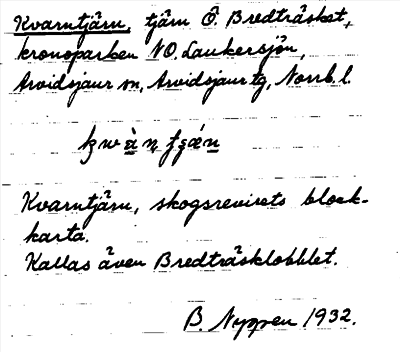 Kvarntjärn, tjärn Ö. Bredträsket,
kronoparken NO. Laukersjön,
Arvidsjaur sn, Arvidsjaur tg, Norrb. l.
Kvarntjärn, skogsrevirets block-
karta.
Kallas även Bredträsklobblet.
B. Nyppen 1932.